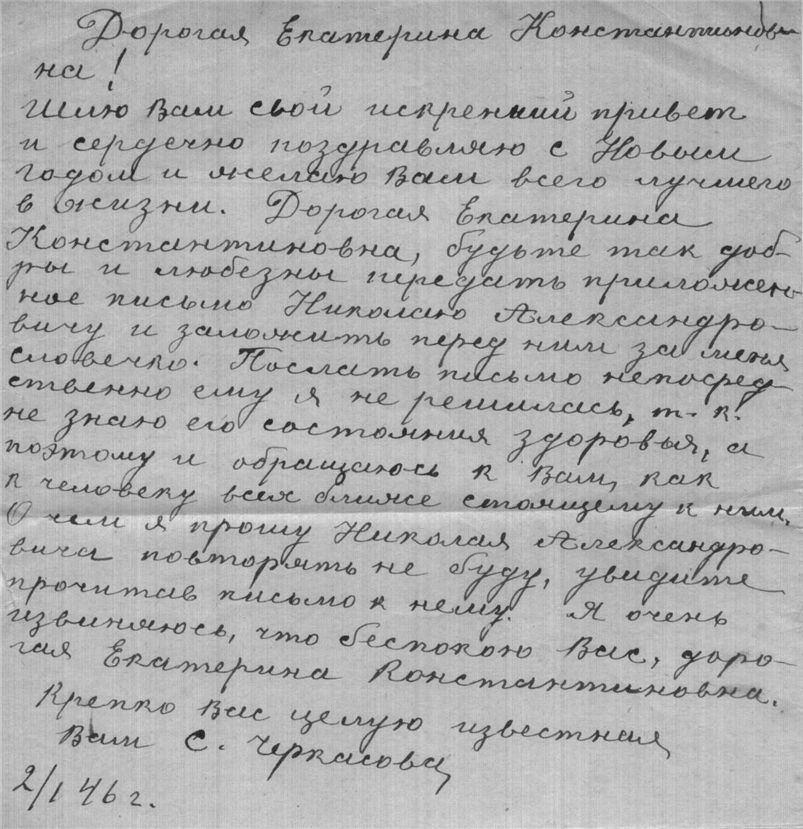 Дорогая Екатерина Константинов-
на!
Шлю Вам свой искренний привет
и сердечно поздравляю с Новым
годом и желаю Вам всего лучшего
в жизни. Дорогая Екатерина
Константиновна, будьте так доб-
ры и любезны передать приложен-
ное письмо Николаю Александро-
вичу и заложить перед ним за меня
словечко. Послать письмо непосред-
ственно ему я не решилась, т.к.
не знаю его состояния здоровья, а
поэтому и обращаюсь к Вам, как
к человеку всех ближе стоящему к ним.
О чем я прошу Николая Александро-
вича повторять не буду, увидите
прочитав письмо к нему. Я очень
извиняюсь, что беспокою Вас, доро-
гая Екатерина Константиновна.
Крепко Вас целую известная
Вам С. Черкасова
2/I 46 г.